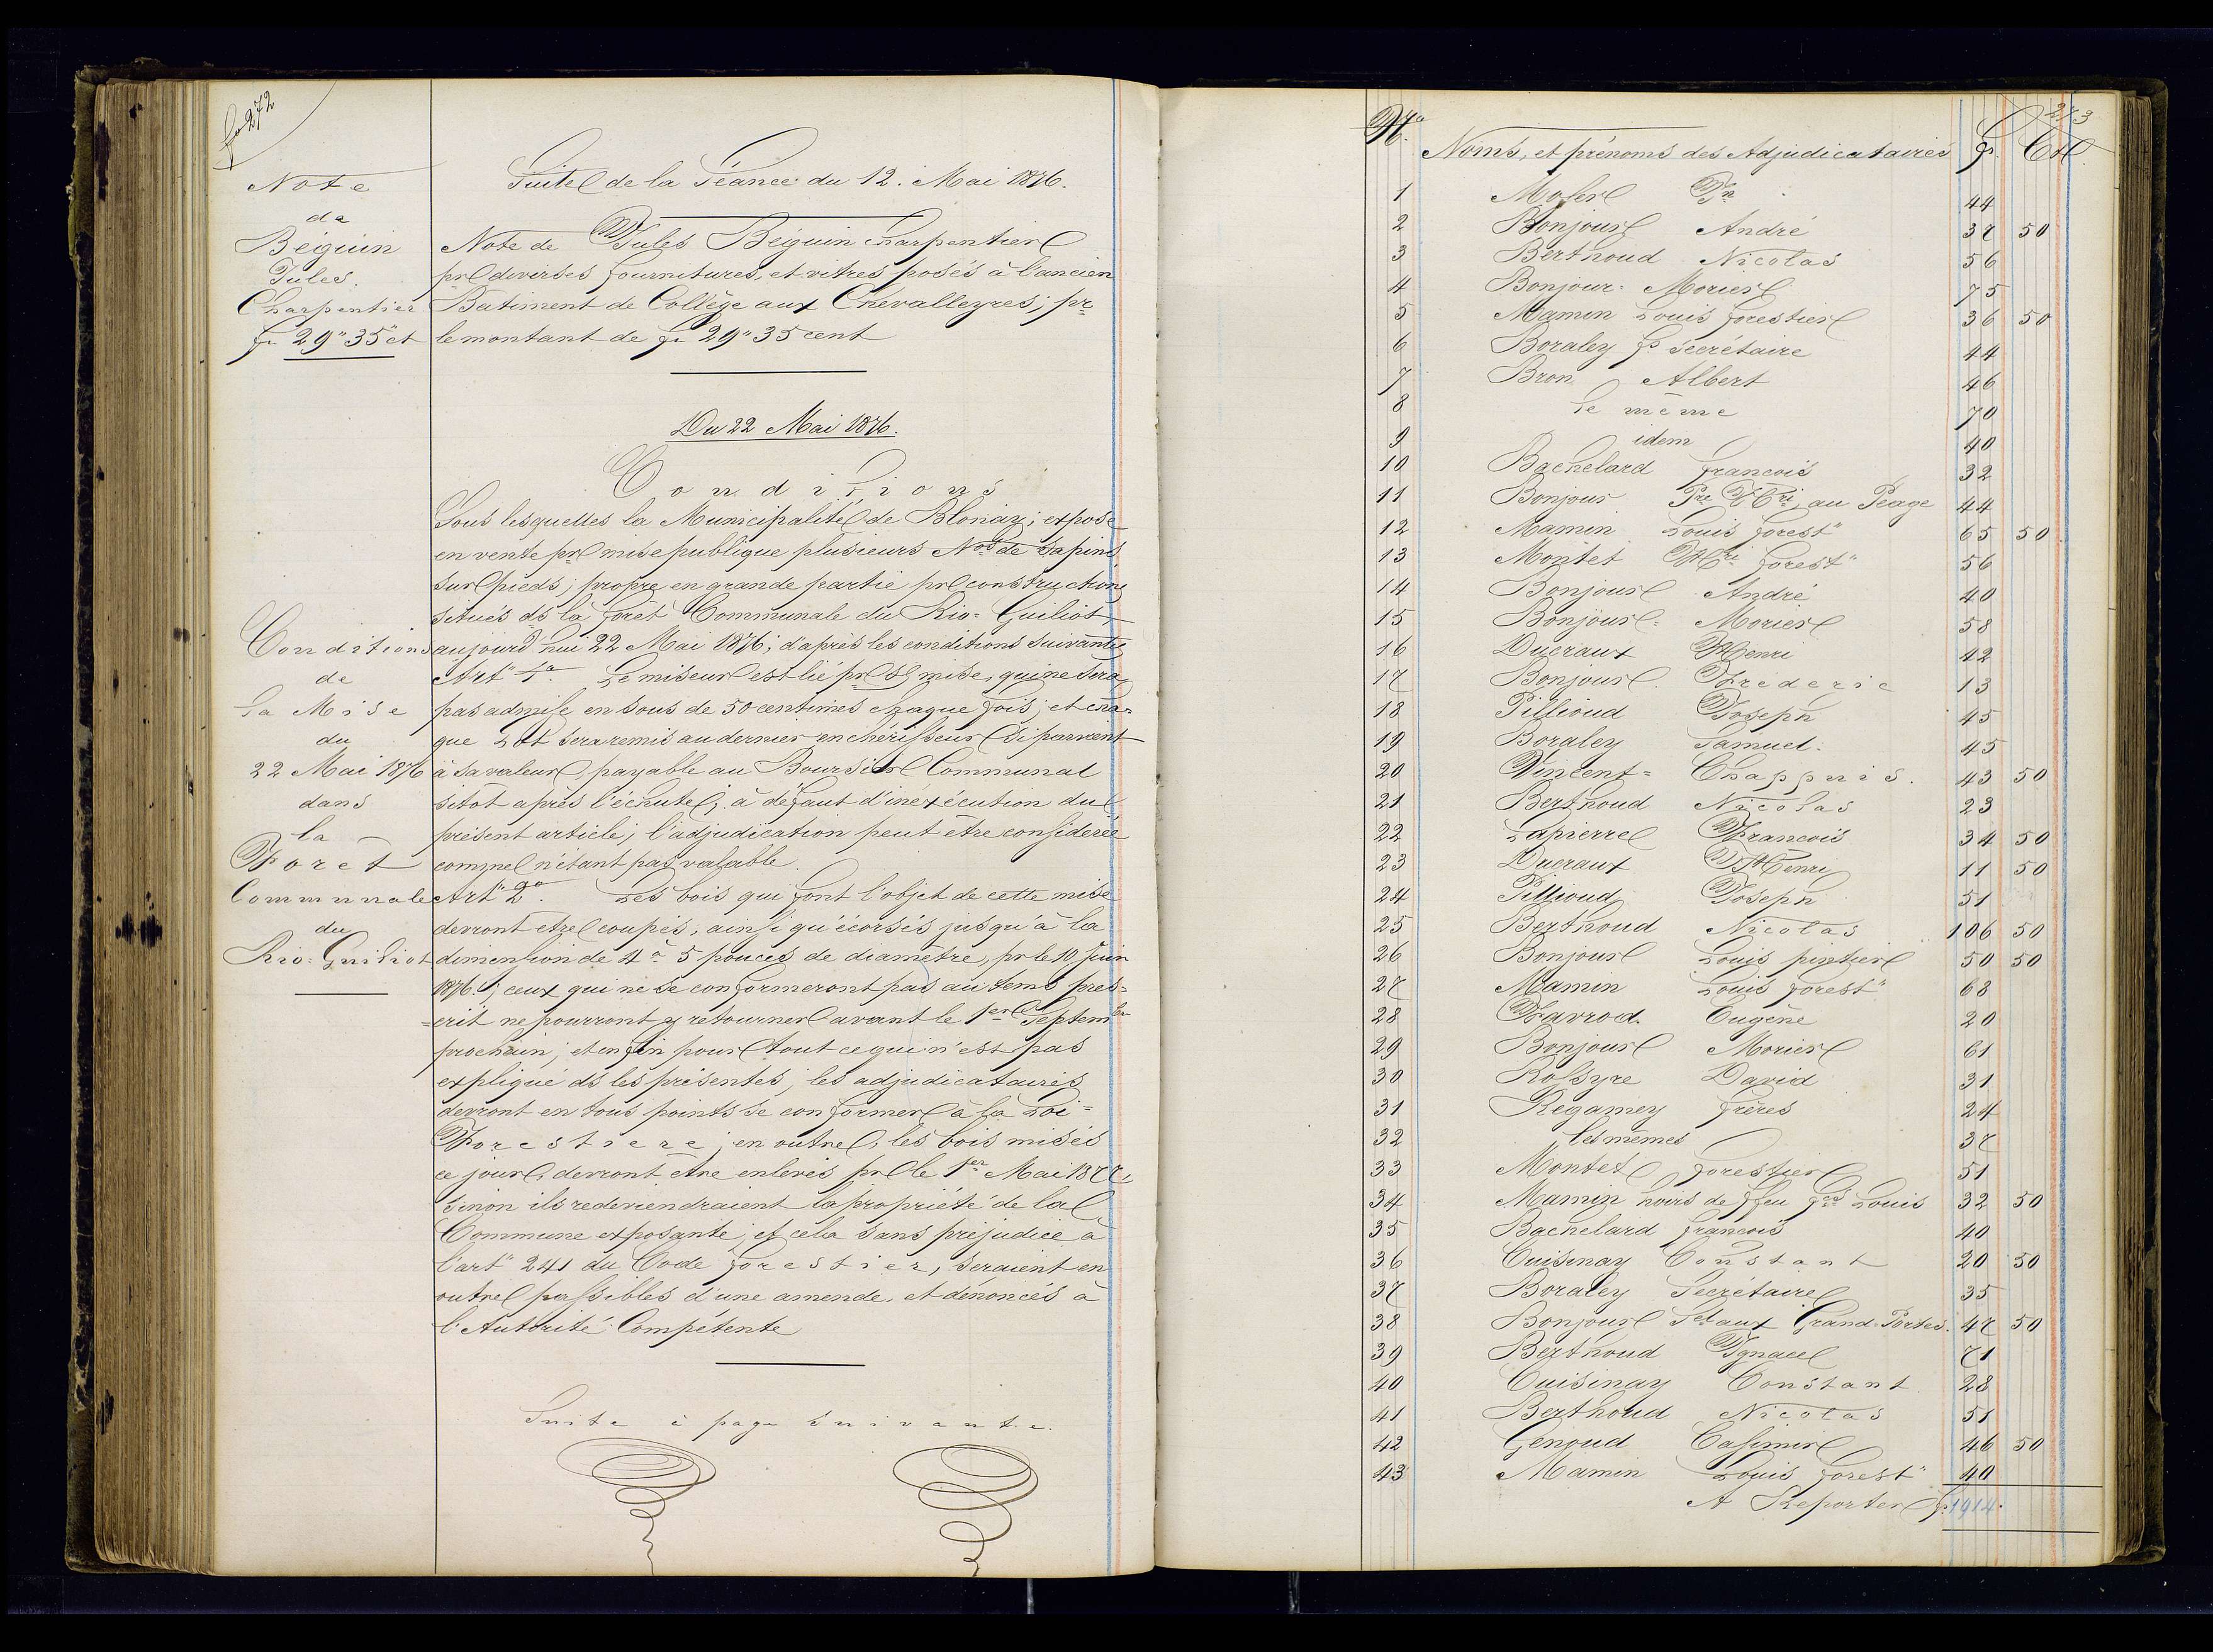 fo 272
Note
de
Béguin
Jules.
Charpentier
fr 29" 35 ct
Suite de la Séance du 12. Mai 1876.
Note de Jules Béguin charpentier
pr diverses fournitures, et vitres posés à l'ancien
Batiment de Collège aux Chevalleyres; pr
le montant de fr 29" 35 cent
Du 22 Mai 1876.
Conditions
Sous lesquelles la Municipalité de Blonay; expose
en vente pr mise publique plusieurs Nos de sapins
sur pieds; propre en grande partie pr constructions
situés ds la Forêt Communale du Rio=Guiliot,
aujourd'hui 22 Mai 1876; d'après les conditions suivantes
Art" 1o. Le miseur est lié pr sa mise, qui ne sera
pas admise en sous de 50 centimes chaque fois; et cha=
que Lot sera remis au dernier enchérisseur si parvient
à sa valeur, payable au Boursier Communal
sitôt après l'échute; à défaut d'inéxécution du
présent article; l'adjudication peut être considérée
comme n'étant pas valable.
Art" 2o. Les bois qui font l'objet de cette mise
devront etre coupés, ainsi qu'écorsés jusqu'à la
dimension de 4 à 5 pouces de diamètre, pr le 10 Juin
1876.; ceux qui ne se conformeront pas au tems pres=
=crit ne pourront y retourner avant le 1er Septembr
prochain; et enfin pour tout ce qui n'est pas
expliqué ds les présentes; les adjudicataires
devront en tous points se conformer à la Loi=
Forestiere; en outre, les bois misés
ce jour, devront être enlevés pr le 1er Mai 1877,
sinon ils redeviendraient la propriété de la
Commune exposante; et cela sans préjudice à
l'art" 241 du Code forestier, seraient en
outre passibles d'une amende, et dénoncés à
l'Autorité Compétente
Conditions
de
la Mise
du
22 Mai 1876
dans
la
Forêt
Communale
du
Rio=Guiliot
Suite à page suivante.
273
No. Noms, et prénoms des Adjudicataires fr. Ct
1 Moser 44
2 Bonjour André 37 50
3 Berthoud Nicolas 56
4 Bonjour=Morier 75
5 Mamin Louis forestier 36 50
6 Boraley fs secrétaire 44
7 Bron Albert 46
8 le même 70
9 idem 40
10 Bachelard francois 32
11 Bonjour Pre Hri au Péage 44
12 Mamin Louis forest" 65 50
13 Montet Hri forest" 56
14 Bonjour André 40
15 Bonjour=Morier 58
16 Ducraux Henri 42
17 Bonjour Frederic 13
18 Pillioud Joseph 45
19 Boraley Samuel. 45
20 Vincent=Chappuis. 43 50
21 Berthoud Nicolas 23
22 Lapierre Francois 34 50
23 Ducraux Henri 11 50
24 Pillioud Joseph 51
25 Berthoud Nicolas 106 50
26 Bonjour Louis pintier 50 50
27 Mamin Louis forest" 68
28 Favrod. Eugène 20
29 Bonjour Morier 61
30 Rossyre David 31
31 Regamey frères 24
32 les mêmes 37
33 Montet forestier 51
34 Mamin hoirs de ffeu fcs Louis 32 50
35 Bachelard francois 40
36 Cuisinay Constant 20 50
37 Boraley Secrétaire 35
38 Bonjour Sel aux Grand-Portes. 47 50
39 Berthoud Ignace 71
40 Cuisinay Constant 28
41 Berthoud Nicolas 51
42 Genoud Casimir 46 50
43 Mamin Louis forest" 40
A Reporter fr. 1914.